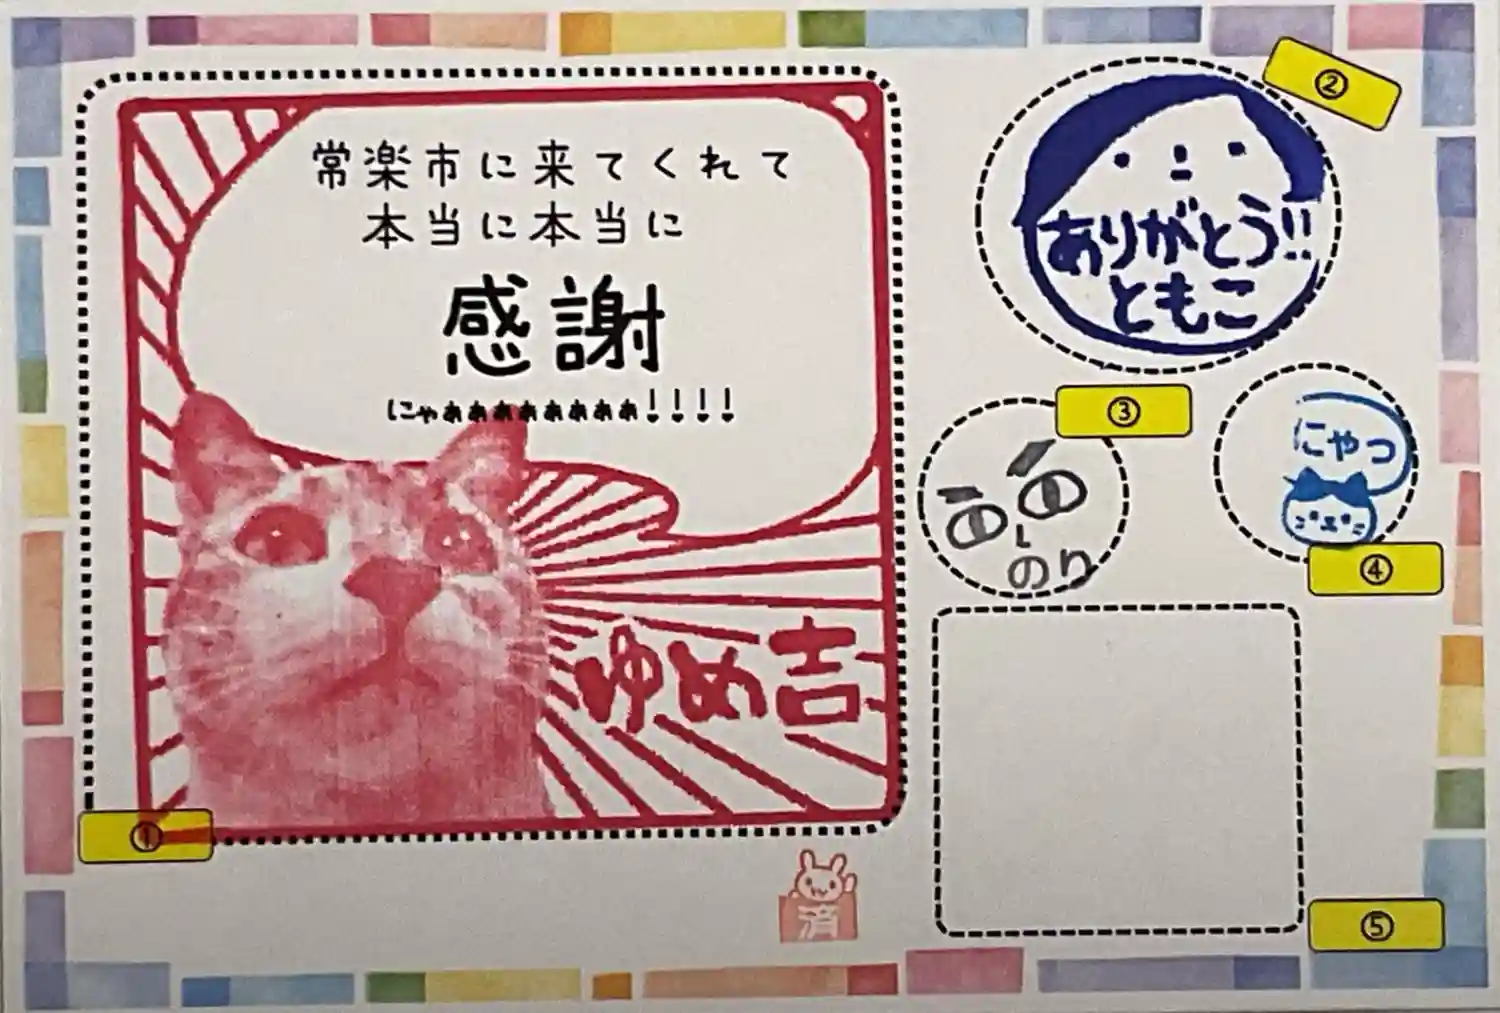 常楽市に来てくれて
本当に本当に
感謝
にゃぁぁぁぁぁぁぁぁ！！！！
ゆめ吉
①
②
ありがとう!!
ともこ
③
のり
④
にゃっ
⑤
済